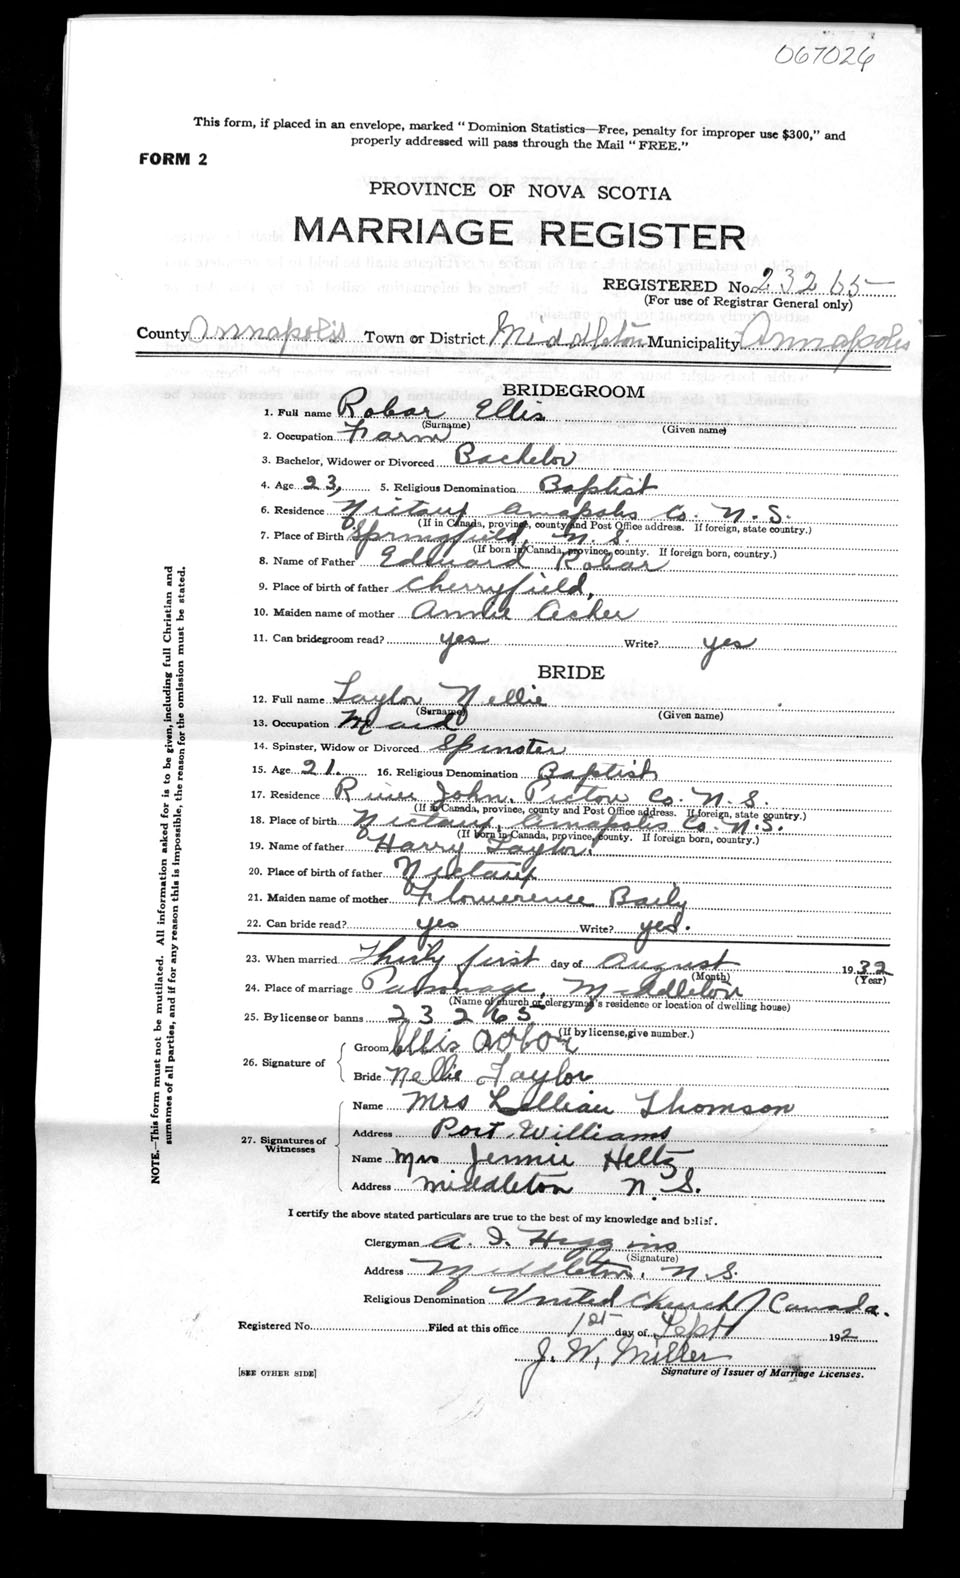 067026
This form, if placed in an envelope, marked "Dominion Statistics—Free, penalty for improper use $300," and
properly addressed will pass through the Mail "FREE."
FORM 2
PROVINCE OF NOVA SCOTIA
MARRIAGE REGISTER
REGISTERED No. 23265
(For use of Registrar General only)
County Annapolis Town or District Middleton Municipality Annapolis
BRIDEGROOM
1. Full name Robar Ellis
(Surname) (Given name)
2. Occupation Farm
3. Bachelor, Widower or Divorced Bachelor
4. Age 23, 5. Religious Denomination Baptist
6. Residence Nictaux Annapolis Co. N. S.
(If in Canada, province, county and Post Office address. If foreign, state country.)
7. Place of Birth Springfield, N. S.
(If born in Canada, province, county. If foreign born, country.)
8. Name of Father Edward Robar
9. Place of birth of father Cherryfield,
10. Maiden name of mother Annie
11. Can bridegroom read? yes Write? yes
BRIDE
12. Full name Taylor Nellie
(Surname) (Given name)
13. Occupation Maid
14. Spinster, Widow or Divorced Spinster
15. Age 21. 16. Religious Denomination Baptist
17. Residence River John, Pictou Co. N. S.
(If in Canada, province, county and Post Office address. If foreign, state country.)
18. Place of birth Nictaux, Annapolis Co. N. S.
(If born in Canada, province, county. If foreign born, country.)
19. Name of father Harry Taylor.
20. Place of birth of father Nictaux
21. Maiden name of mother Flowerence Baily
22. Can bride read? yes Write? yes.
23. When married Thirty first day of August 1932
(Month) (Year)
24. Place of marriage Parsonage, Middleton
(Name of church or clergyman's residence or location of dwelling house)
25. By license or banns 23265
(If by license, give number.)
26. Signature of
Groom Ellis Robar
Bride Nellie Taylor
27. Signatures of Witnesses
Name Mrs Lillian Thomson
Address Port Williams
Name Mrs Jennie Heltz
Address Middleton N. S.
I certify the above stated particulars are true to the best of my knowledge and belief.
Clergyman A. J. Higgins
(Signature)
Address Middleton, N. S.
Religious Denomination United Church of Canada.
Registered No. Filed at this office 1st day of Sept 192
J. W. Miller
[SEE OTHER SIDE] Signature of Issuer of Marriage Licenses.
NOTE.—This form must not be mutilated. All information asked for is to be given, including full Christian and
surnames of all parties, and if for any reason this is impossible, the reason for the omission must be stated.